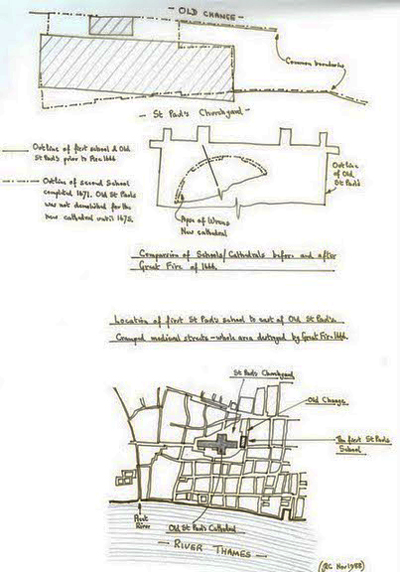 - OLD CHANGE -
Common boundaries
- St Paul's Churchyard -
Outline of first school & Old
St Paul's prior to Dec. 1666
Outline of second School
completed 1671. Old St Paul's
was not demolished for the
new cathedral until 1675.
Outline
of Old
St Paul's
Apse of Wrens
New cathedral
Comparison of Schools/Cathedrals before and after
Great Fire of 1666.
Location of first St Paul's school to east of Old St Paul's.
Cramped medieval streets - whole area destroyed by Great Fire 1666
St Paul's Churchyard
Old Change
The first St Paul's
School
Fleet
River
Old St Paul's Cathedral
- RIVER THAMES -
Nov 1988)